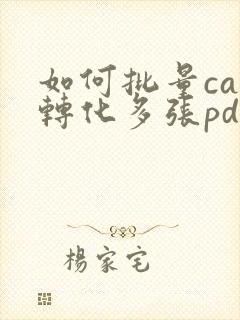 如何批量ca
轉化多張pd
楊家宅